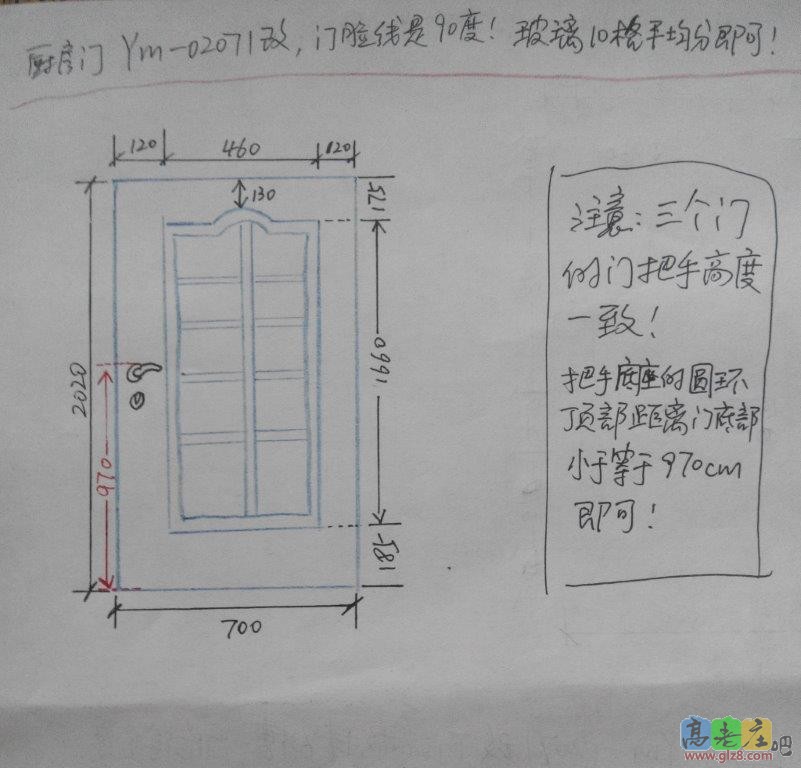 厨房门 Ym-02071改,门脸线是90度!玻璃10格平均分即可!
120
460
120
130
175
2020
970
1660
185
700
注意:三个门
的门把手高度
一致!
把手底座的圆环
顶部距离门底部
小于等于970cm
即可!
高老庄吧
www.glz8.com